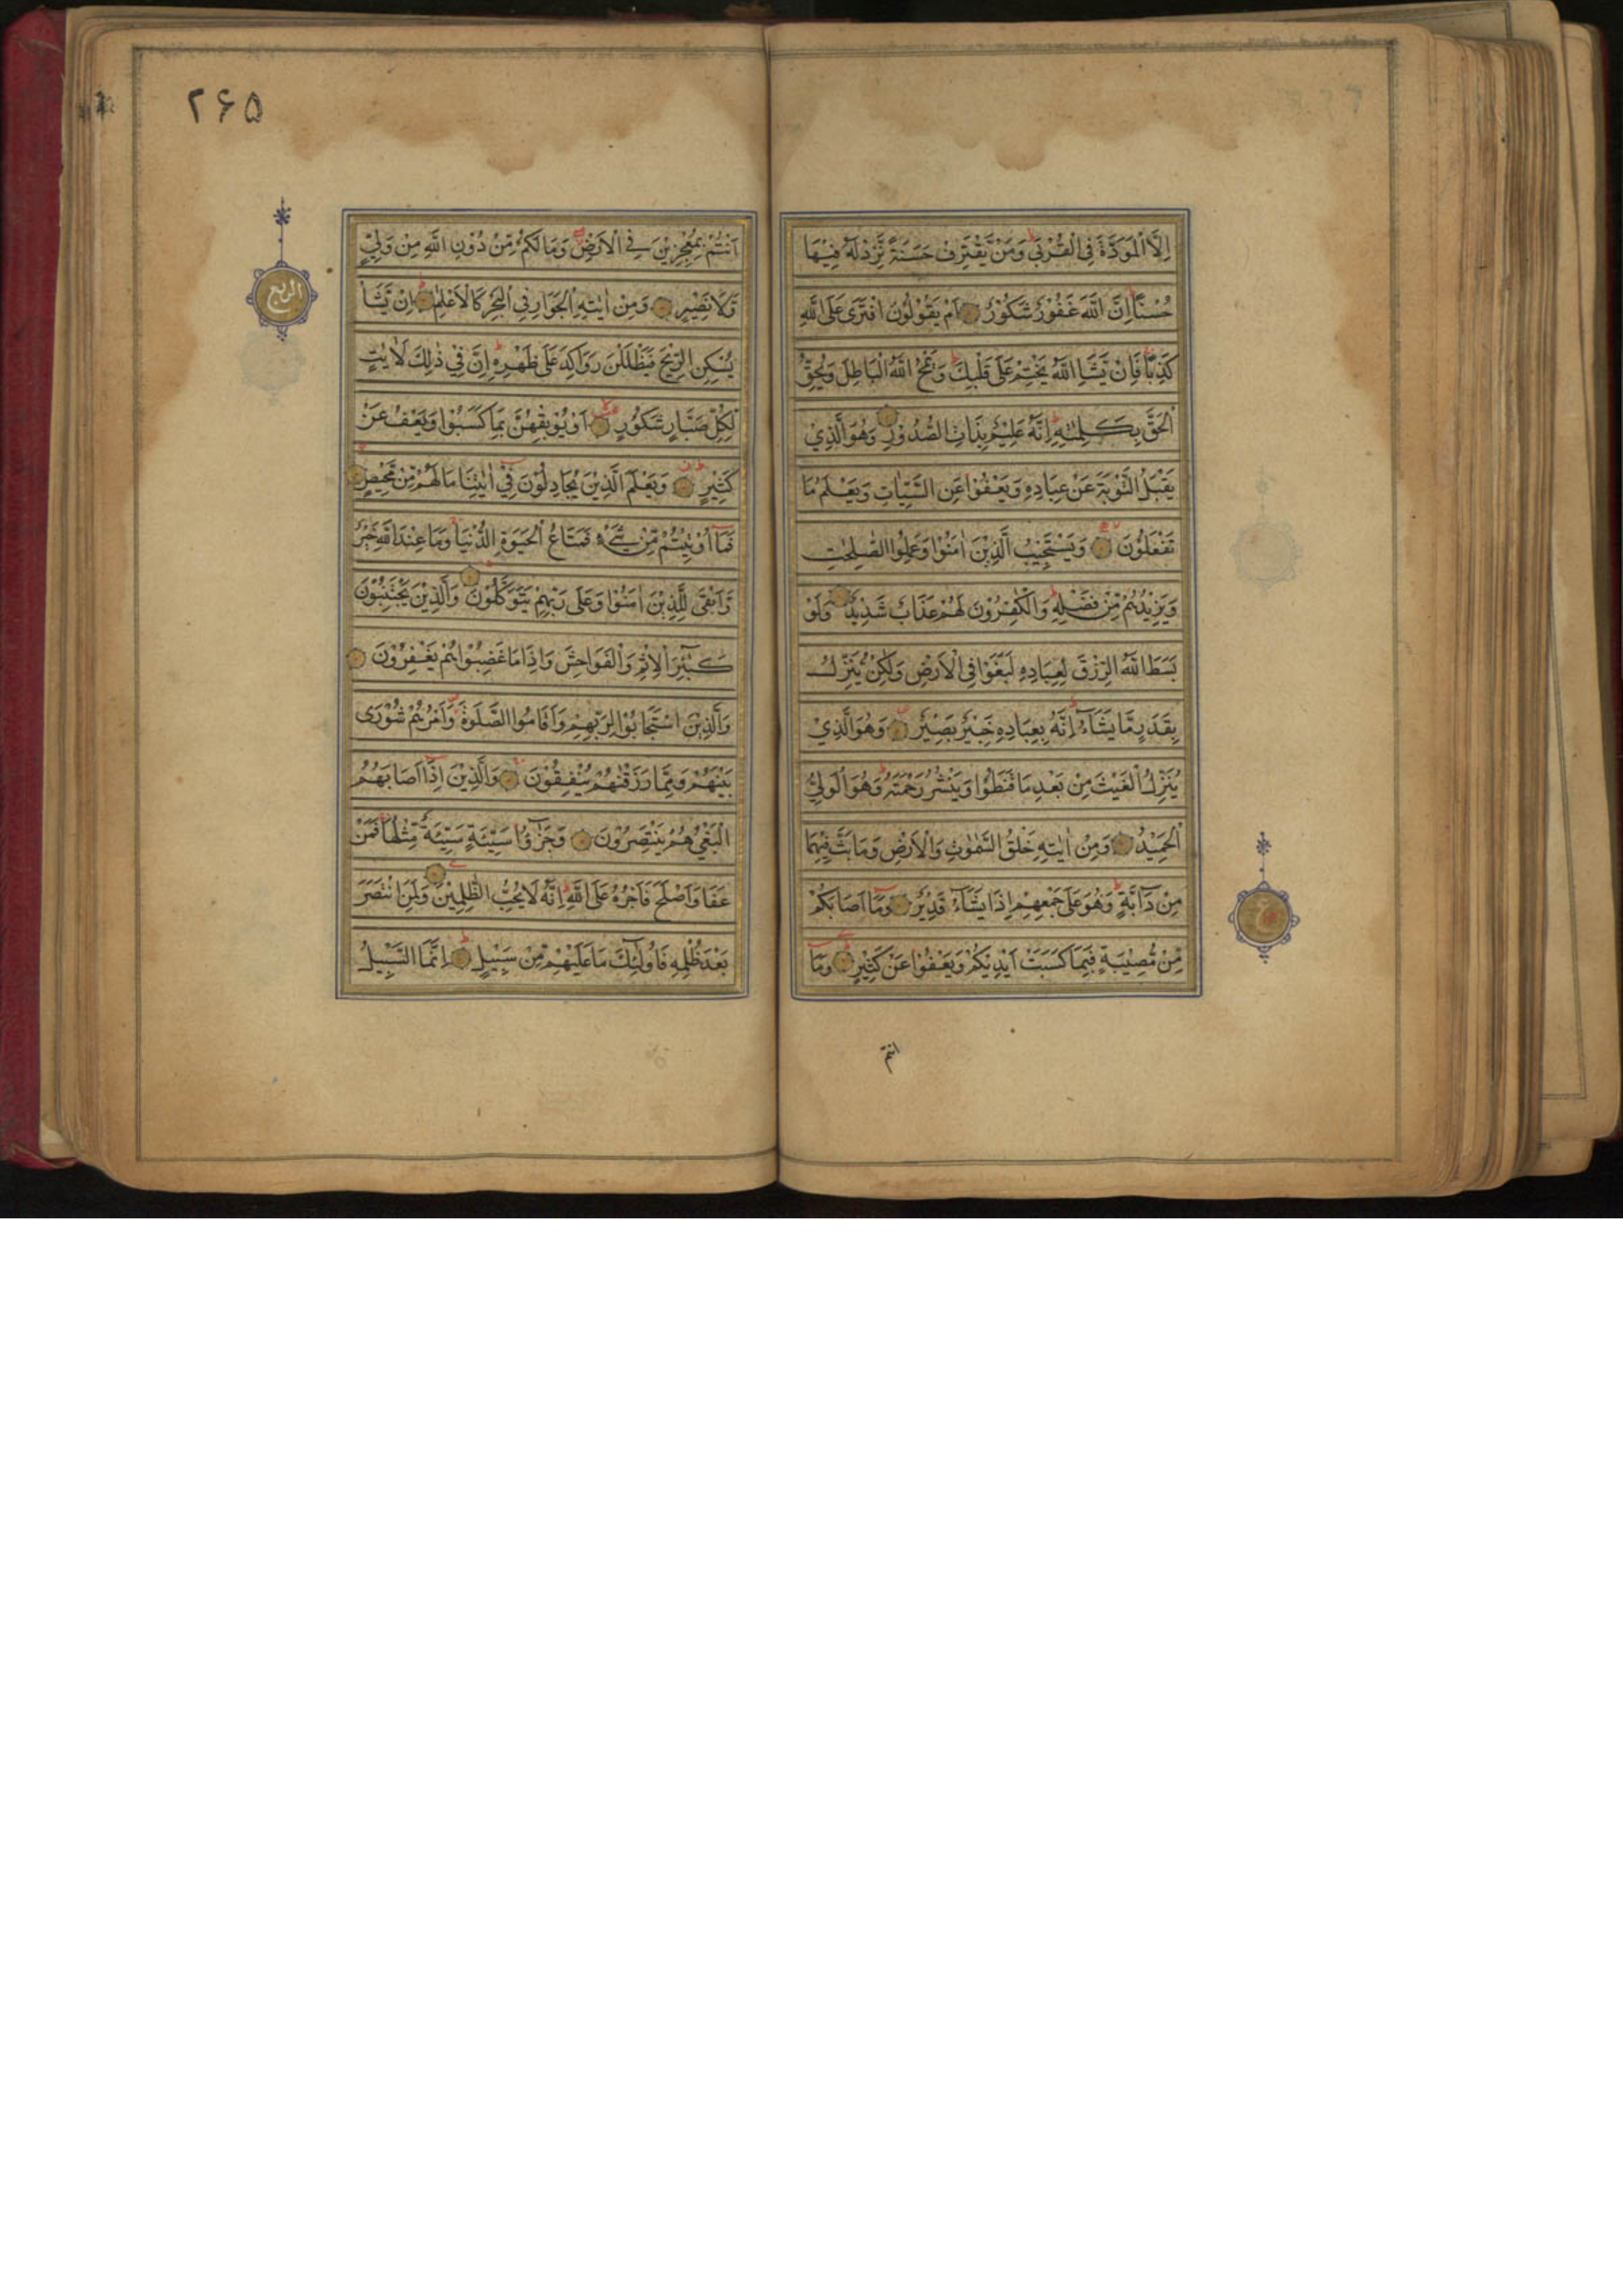 اِلَّا الْمَوَدَّةَ فِى الْقُرْبٰى وَمَنْ يَّقْتَرِفْ حَسَنَةً نَّزِدْ لَهٗ فِيْهَا
حُسْنًا اِنَّ اللّٰهَ غَفُوْرٌ شَكُوْرٌ اَمْ يَقُوْلُوْنَ افْتَرٰى عَلَى اللّٰهِ
كَذِبًا فَاِنْ يَّشَاِ اللّٰهُ يَخْتِمْ عَلٰى قَلْبِكَ وَيَمْحُ اللّٰهُ الْبَاطِلَ وَيُحِقُّ
الْحَقَّ بِكَلِمٰتِهٖ اِنَّهٗ عَلِيْمٌ بِذَاتِ الصُّدُوْرِ وَهُوَ الَّذِيْ
يَقْبَلُ التَّوْبَةَ عَنْ عِبَادِهٖ وَيَعْفُوْا عَنِ السَّيِّاٰتِ وَيَعْلَمُ مَا
تَفْعَلُوْنَ وَيَسْتَجِيْبُ الَّذِيْنَ اٰمَنُوْا وَعَمِلُوا الصّٰلِحٰتِ
وَيَزِيْدُهُمْ مِّنْ فَضْلِهٖ وَالْكٰفِرُوْنَ لَهُمْ عَذَابٌ شَدِيْدٌ وَلَوْ
بَسَطَ اللّٰهُ الرِّزْقَ لِعِبَادِهٖ لَبَغَوْا فِى الْاَرْضِ وَلٰكِنْ يُّنَزِّلُ
بِقَدَرٍ مَّا يَشَآءُ اِنَّهٗ بِعِبَادِهٖ خَبِيْرٌ بَصِيْرٌ وَهُوَ الَّذِيْ
يُنَزِّلُ الْغَيْثَ مِنْ بَعْدِ مَا قَنَطُوْا وَيَنْشُرُ رَحْمَتَهٗ وَهُوَ الْوَلِيُّ
الْحَمِيْدُ وَمِنْ اٰيٰتِهٖ خَلْقُ السَّمٰوٰتِ وَالْاَرْضِ وَمَا بَثَّ فِيْهِمَا
مِنْ دَآبَّةٍ وَهُوَ عَلٰى جَمْعِهِمْ اِذَا يَشَآءُ قَدِيْرٌ وَمَآ اَصَابَكُمْ
مِّنْ مُّصِيْبَةٍ فَبِمَا كَسَبَتْ اَيْدِيْكُمْ وَيَعْفُوْا عَنْ كَثِيْرٍ وَمَآ
ع
انتم
۲۶۵
اَنْتُمْ بِمُعْجِزِيْنَ فِى الْاَرْضِ وَمَا لَكُمْ مِّنْ دُوْنِ اللّٰهِ مِنْ وَّلِيٍّ
وَّلَا نَصِيْرٍ وَمِنْ اٰيٰتِهِ الْجَوَارِ فِى الْبَحْرِ كَالْاَعْلَامِ اِنْ يَّشَاْ
يُسْكِنِ الرِّيْحَ فَيَظْلَلْنَ رَوَاكِدَ عَلٰى ظَهْرِهٖ اِنَّ فِيْ ذٰلِكَ لَاٰيٰتٍ
لِّكُلِّ صَبَّارٍ شَكُوْرٍ اَوْ يُوْبِقْهُنَّ بِمَا كَسَبُوْا وَيَعْفُ عَنْ
كَثِيْرٍ وَيَعْلَمَ الَّذِيْنَ يُجَادِلُوْنَ فِيْ اٰيٰتِنَا مَا لَهُمْ مِّنْ مَّحِيْصٍ
فَمَآ اُوْتِيْتُمْ مِّنْ شَيْءٍ فَمَتَاعُ الْحَيٰوةِ الدُّنْيَا وَمَا عِنْدَ اللّٰهِ خَيْرٌ
وَّاَبْقٰى لِلَّذِيْنَ اٰمَنُوْا وَعَلٰى رَبِّهِمْ يَتَوَكَّلُوْنَ وَالَّذِيْنَ يَجْتَنِبُوْنَ
كَبٰٓئِرَ الْاِثْمِ وَالْفَوَاحِشَ وَاِذَا مَا غَضِبُوْا هُمْ يَغْفِرُوْنَ
وَالَّذِيْنَ اسْتَجَابُوْا لِرَبِّهِمْ وَاَقَامُوا الصَّلٰوةَ وَاَمْرُهُمْ شُوْرٰى
بَيْنَهُمْ وَمِمَّا رَزَقْنٰهُمْ يُنْفِقُوْنَ وَالَّذِيْنَ اِذَآ اَصَابَهُمُ
الْبَغْيُ هُمْ يَنْتَصِرُوْنَ وَجَزٰٓؤُا سَيِّئَةٍ سَيِّئَةٌ مِّثْلُهَا فَمَنْ
عَفَا وَاَصْلَحَ فَاَجْرُهٗ عَلَى اللّٰهِ اِنَّهٗ لَا يُحِبُّ الظّٰلِمِيْنَ وَلَمَنِ انْتَصَرَ
بَعْدَ ظُلْمِهٖ فَاُولٰٓئِكَ مَا عَلَيْهِمْ مِّنْ سَبِيْلٍ اِنَّمَا السَّبِيْلُ
الربع